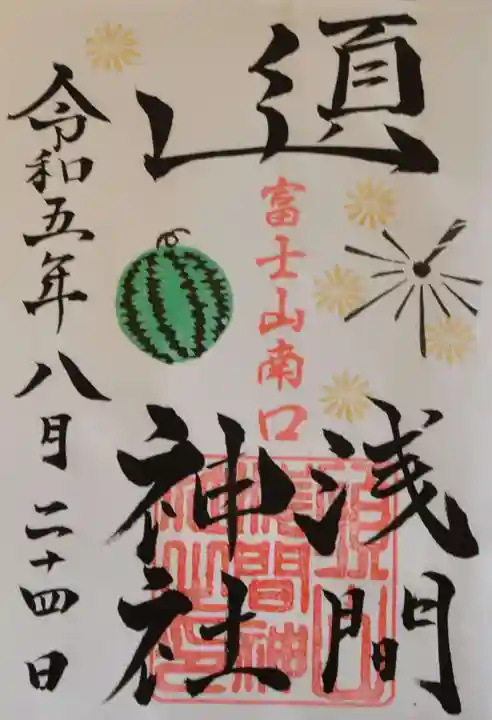 須山
浅間
神社
富士山南口
須山浅間神社之印
令和五年八月二十四日